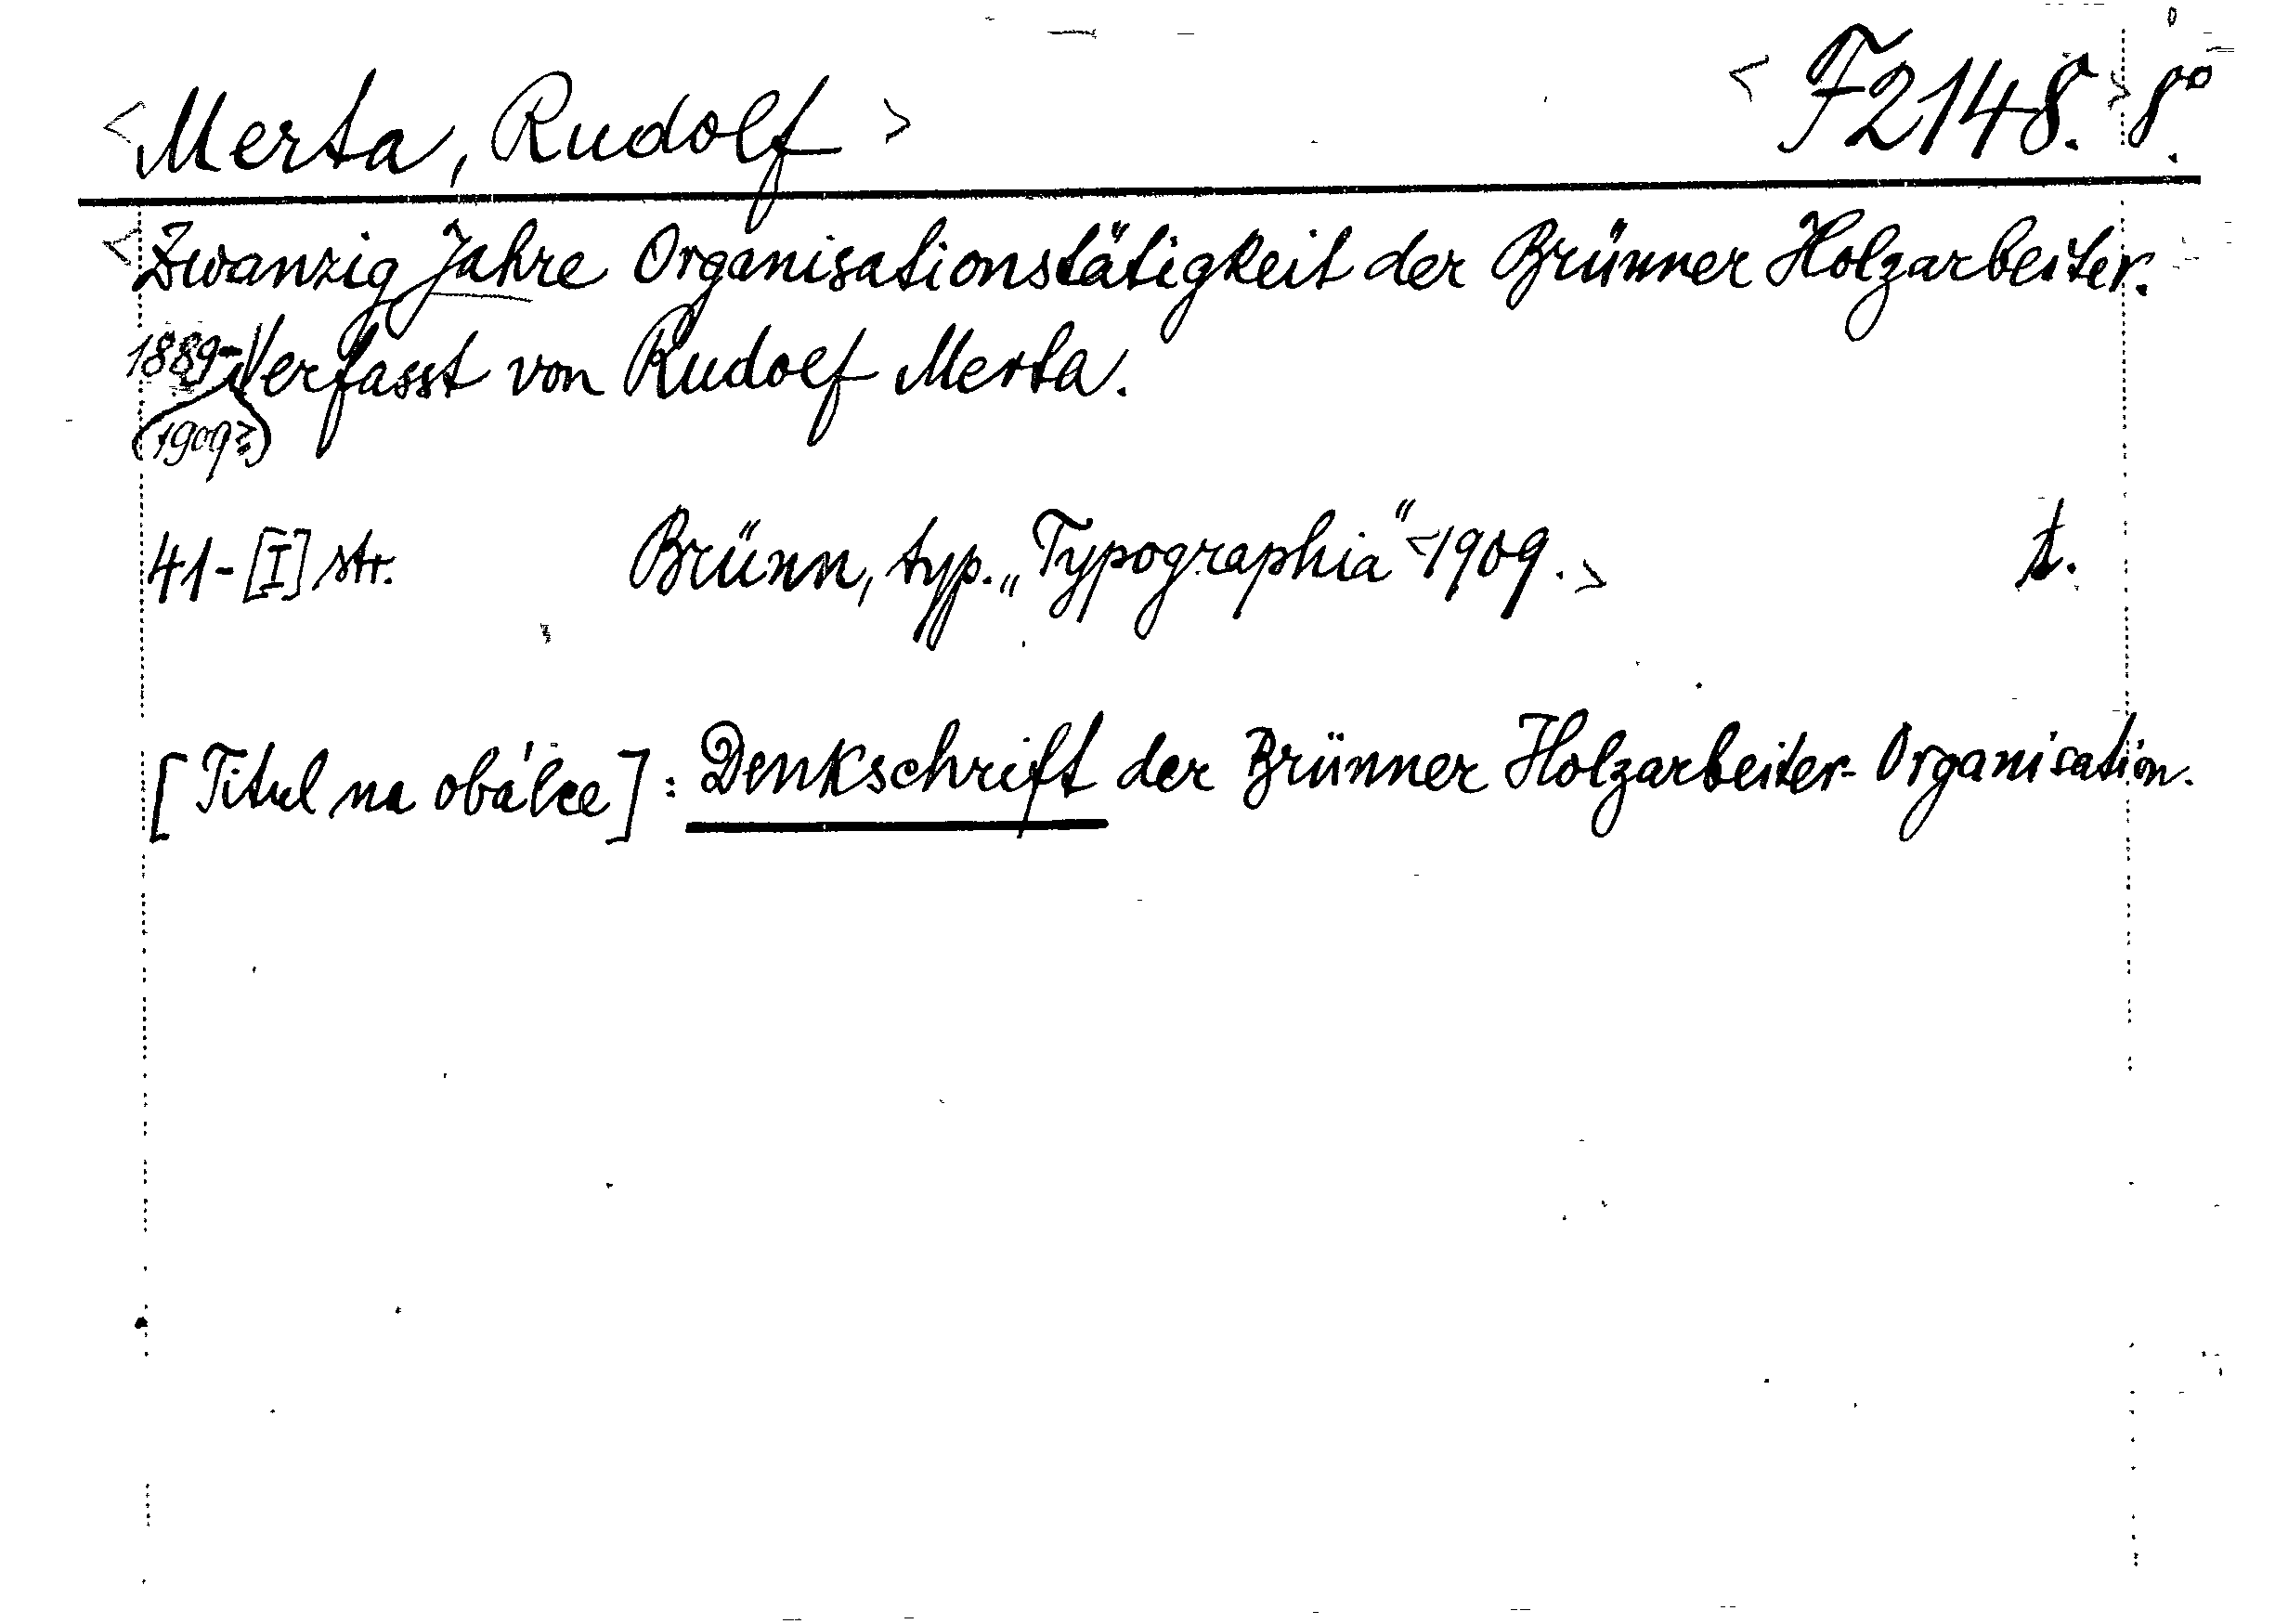 <Merta, Rudolf> <F2148.> 8°.
<Zwanzig Jahre Organisationstätigkeit der Brünner Holzarbeiter.
1889- Verfasst von Rudolf Merta.
(1909>)
41-[I] str. Brünn, typ. „Typographia“ <1909.> t.
[Titul na obálce]: Denkschrift der Brünner Holzarbeiter-Organisation.